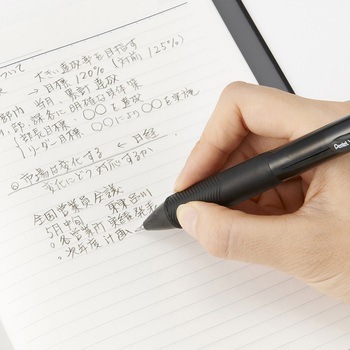 ついて
大きい達成率を目指す
→ 目標 120% (対前 125%)
部内 当月、累計達成
明確な具体策
部長目標 ○○を達成
リーダー目標 ○○により○○を実施
市場は変化する ← 日経
変化にどう対応するか
全国営業員会議
5月中旬 東京品川
各営業所 実績発表
次年度計画
Pentel